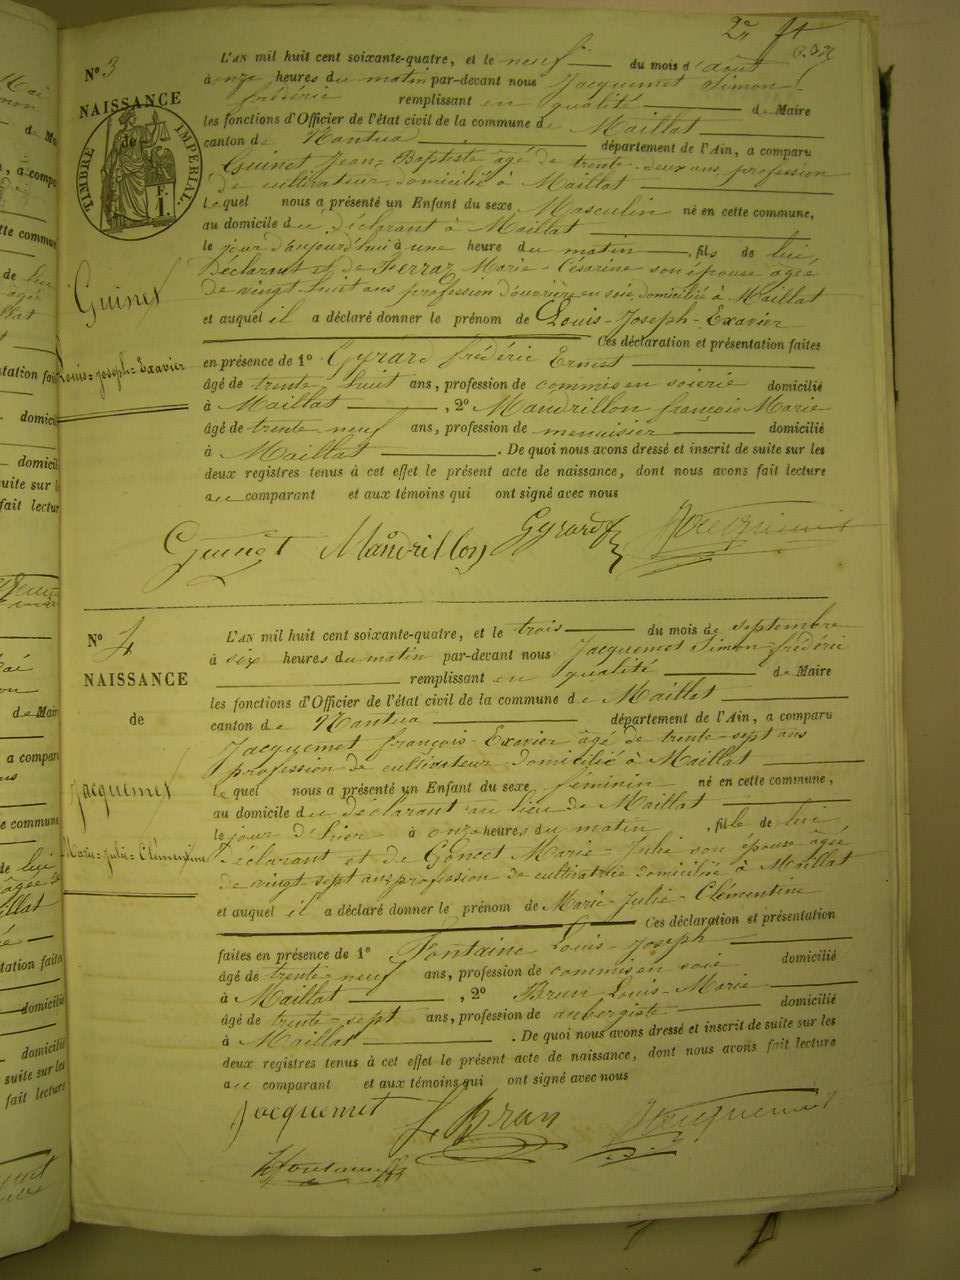 2e ft
N° 3
NAISSANCE
de
TIMBRE IMPERIAL
1 F.
Guinet
Louis-Joseph-Exavier
L'AN mil huit cent soixante-quatre, et le neuf du mois d'août
à onze heures du matin par-devant nous Jacquemet Simon
frédéric remplissant en qualité de Maire
les fonctions d'Officier de l'état civil de la commune de Maillat
canton de Nantua département de l'Ain, a comparu
Guinet Jean-Baptiste âgé de trente-deux ans, profession
de cultivateur domicilié à Maillat
Lequel nous a présenté un Enfant du sexe Masculin né en cette commune,
au domicile du déclarant à Maillat
le jour d'aujourd'hui à une heure du matin, fils de lui
Déclarant et de Ferraz Marie-Césarine son épouse âgée
de vingt huit ans profession d'ouvrière en soie domicilié à Maillat
et auquel il a déclaré donner le prénom de Louis-Joseph-Exavier
Ces déclaration et présentation faites
en présence de 1° Gyrard frédéric Ernest
âgé de trente huit ans, profession de commis en soierie domicilié
à Maillat, 2° Mandrillon françois Marie
âgé de trente neuf ans, profession de menuisier domicilié
à Maillat. De quoi nous avons dressé et inscrit de suite sur les
deux registres tenus à cet effet le présent acte de naissance, dont nous avons fait lecture
au comparant et aux témoins qui ont signé avec nous
Guinet Mandrillon Gyrard Jacquemet
N° 4
NAISSANCE
de
Jacquemet
Marie-Julie-Clémentine
L'AN mil huit cent soixante-quatre, et le trois du mois de septembre
à six heures du matin par-devant nous Jacquemet Simon frédéric
remplissant en qualité de Maire
les fonctions d'Officier de l'état civil de la commune de Maillat
canton de Nantua département de l'Ain, a comparu
Jacquemet françois-Exavier âgé de trente-sept ans
profession de cultivateur domicilié à Maillat
Lequel nous a présenté un Enfant du sexe féminin né en cette commune,
au domicile du déclarant au lieu de Maillat
le jour d'hier à onze heures du matin, fille de lui
Déclarant et de Goncet Marie-Julie son épouse âgée
de vingt sept ans profession de cultivatrice domiciliée à Maillat
et auquel il a déclaré donner le prénom de Marie-Julie-Clémentine
Ces déclaration et présentation
faites en présence de 1° Fontaine Louis-Joseph
âgé de trente-neuf ans, profession de commis en soie domicilié
à Maillat, 2° Brun Louis-Marie
âgé de trente-sept ans, profession de aubergiste domicilié
à Maillat. De quoi nous avons dressé et inscrit de suite sur les
deux registres tenus à cet effet le présent acte de naissance, dont nous avons fait lecture
au comparant et aux témoins qui ont signé avec nous
Jacquemet L Brun Jacquemet
Fontaine